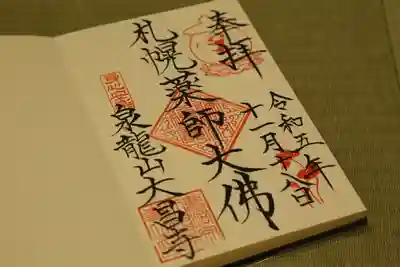 奉拝
令和五年
十一月十八日
札幌薬師大佛
泉龍山大昌寺